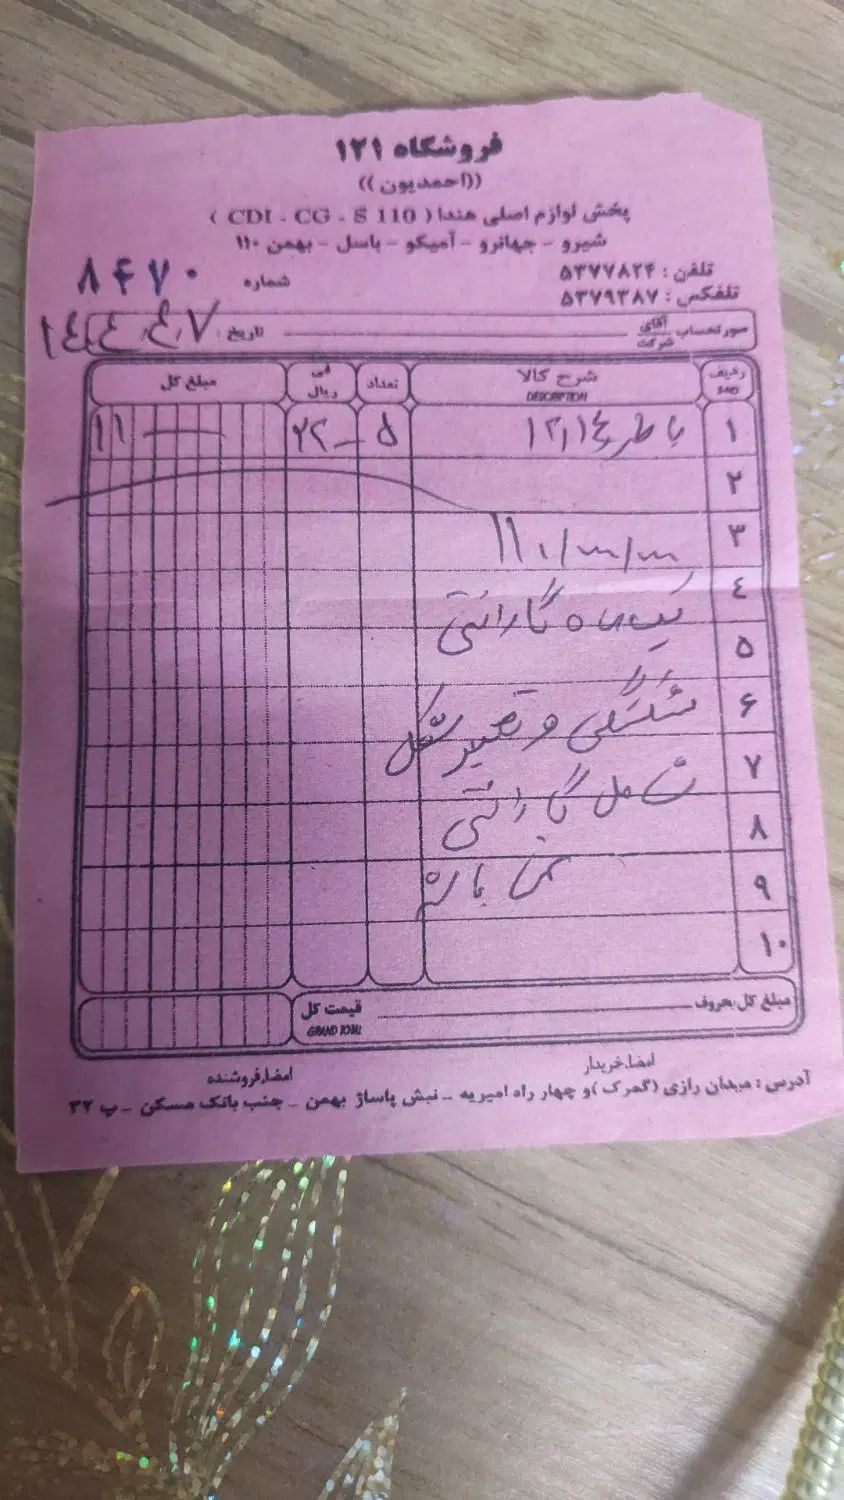 فروشگاه ۱۲۱
((احمدیون))
پخش لوازم اصلی هندا ( CDI - CG - S 110 )
شیرو - جهانرو - آمیکو - باسل - بهمن ۱۱۰
تلفن : ۵۳۷۷۸۲۴
شماره ۸۴۷۰
تلفکس : ۵۳۷۹۳۸۷
صورتحساب آقای شرکت تاریخ : ۱۴۰۴/۴/۷
ردیف شرح کالا DESCRIPTION تعداد فی ریال مبلغ کل
۱ باطری ۱۲/۱۴ ۵ ۲۲ ۱۱
۲
۳
۴ یک ماه گارانتی
۵
۶ شکستگی و تغییر شکل
۷ شامل گارانتی
۸
۹ نمی باشد
۱۰
مبلغ کل بحروف قیمت کل
GRAND TOTAL
امضاءخریدار امضاءفروشنده
آدرس : میدان رازی (گمرک )و چهار راه امیریه - نبش پاساژ بهمن - جنب بانک مسکن - پ ۳۲